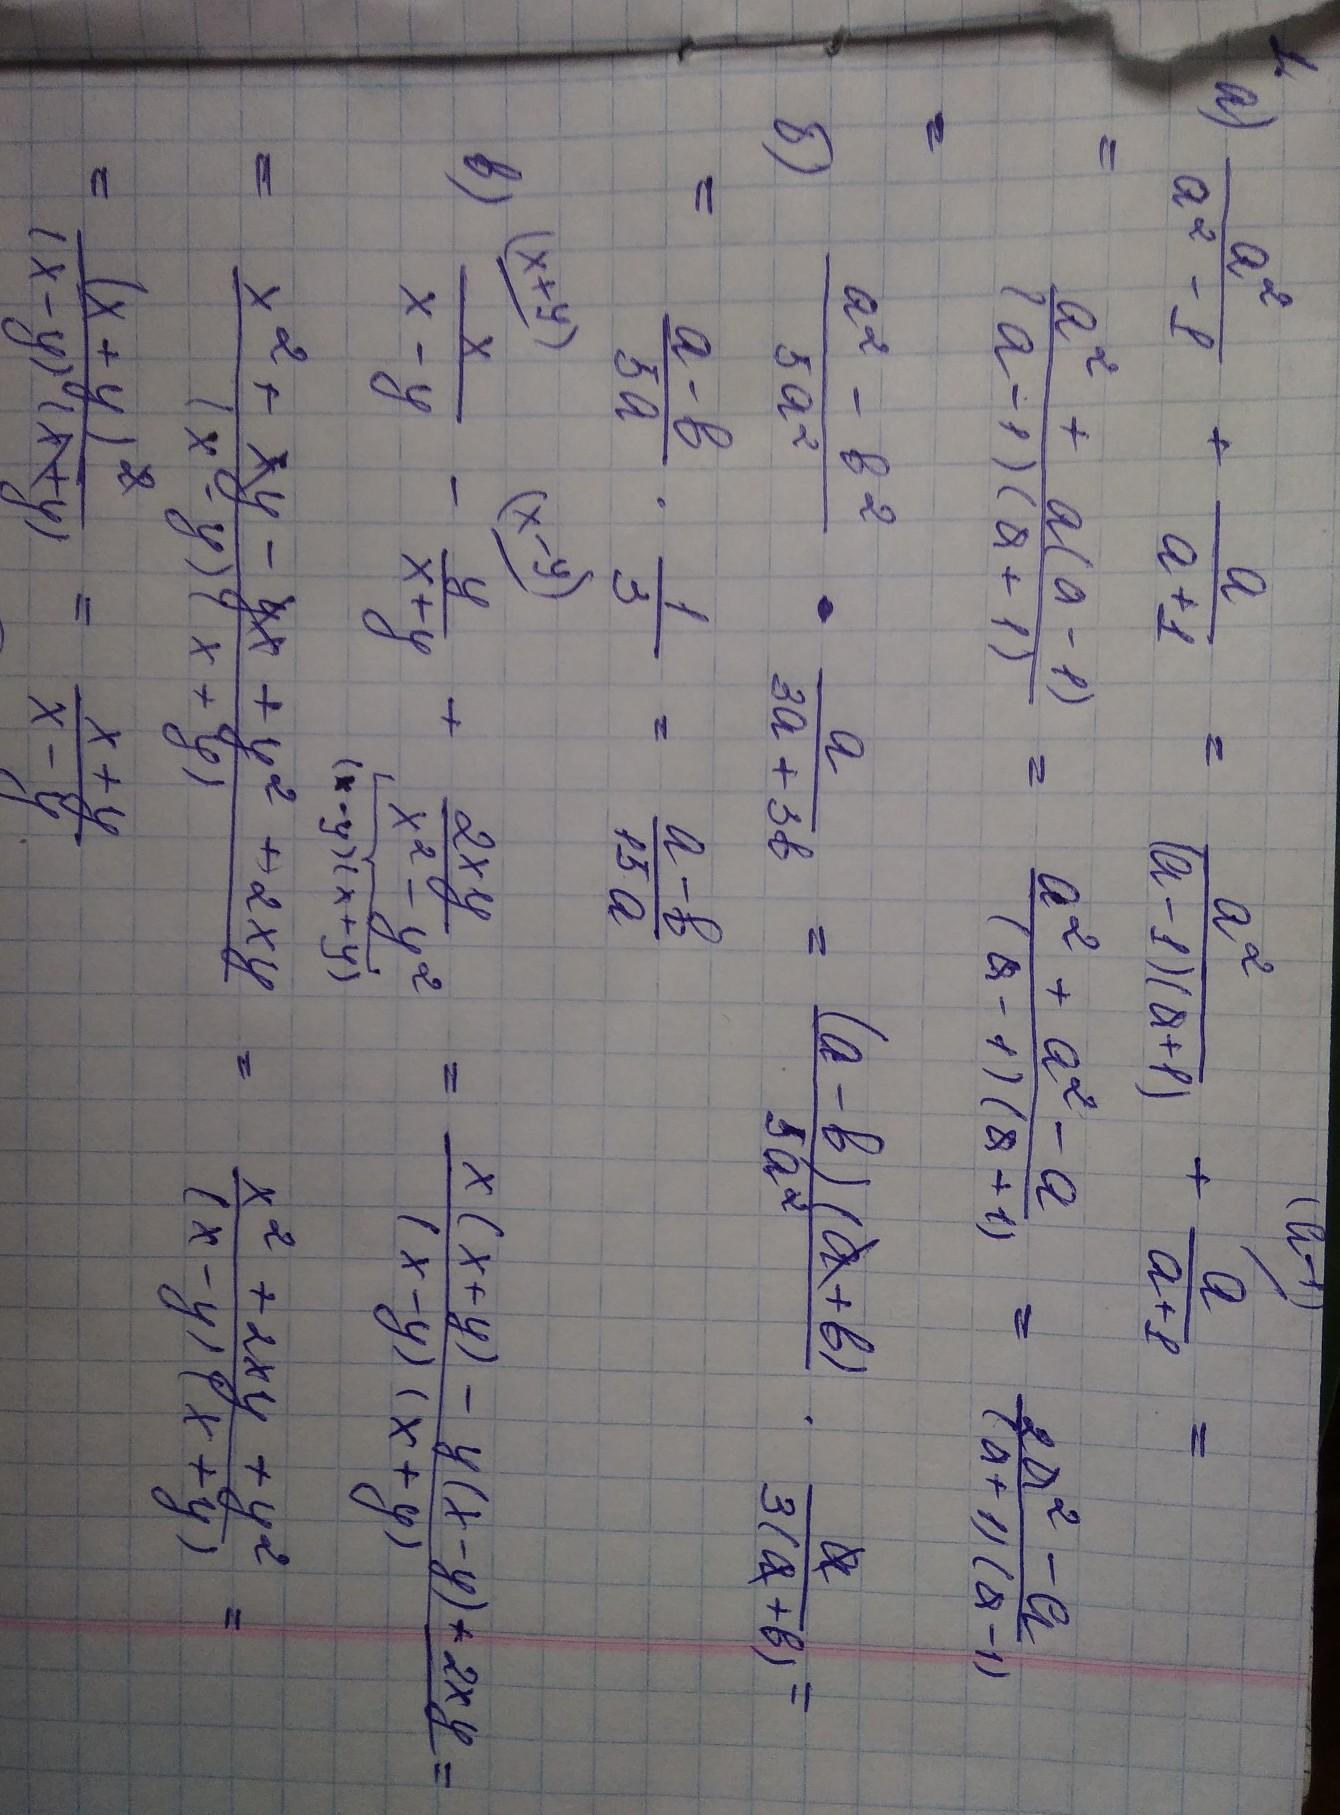 1.
(a-1)
а) a²/(a² - 1) + a/(a+1) = a²/((a-1)(a+1)) + a/(a+1) =
= (a² + a(a-1))/((a-1)(a+1)) = (a² + a² - a)/((a-1)(a+1)) = (2a² - a)/((a+1)(a-1))
=
б) (a² - b²)/(5a²) · a/(3a+3b) = ((a-b)(a+b))/(5a²) · a/(3(a+b)) =
= (a-b)/(5a) · 1/3 = (a-b)/(15a)
(x+y) (x-y)
в) x/(x-y) - y/(x+y) + 2xy/(x² - y²) = (x(x+y) - y(x-y) + 2xy)/((x-y)(x+y)) =
(x-y)(x+y)
= (x² + xy - yx + y² + 2xy)/((x-y)(x+y)) = (x² + 2xy + y²)/((x-y)(x+y)) =
= (x+y)²/((x-y)(x+y)) = (x+y)/(x-y)